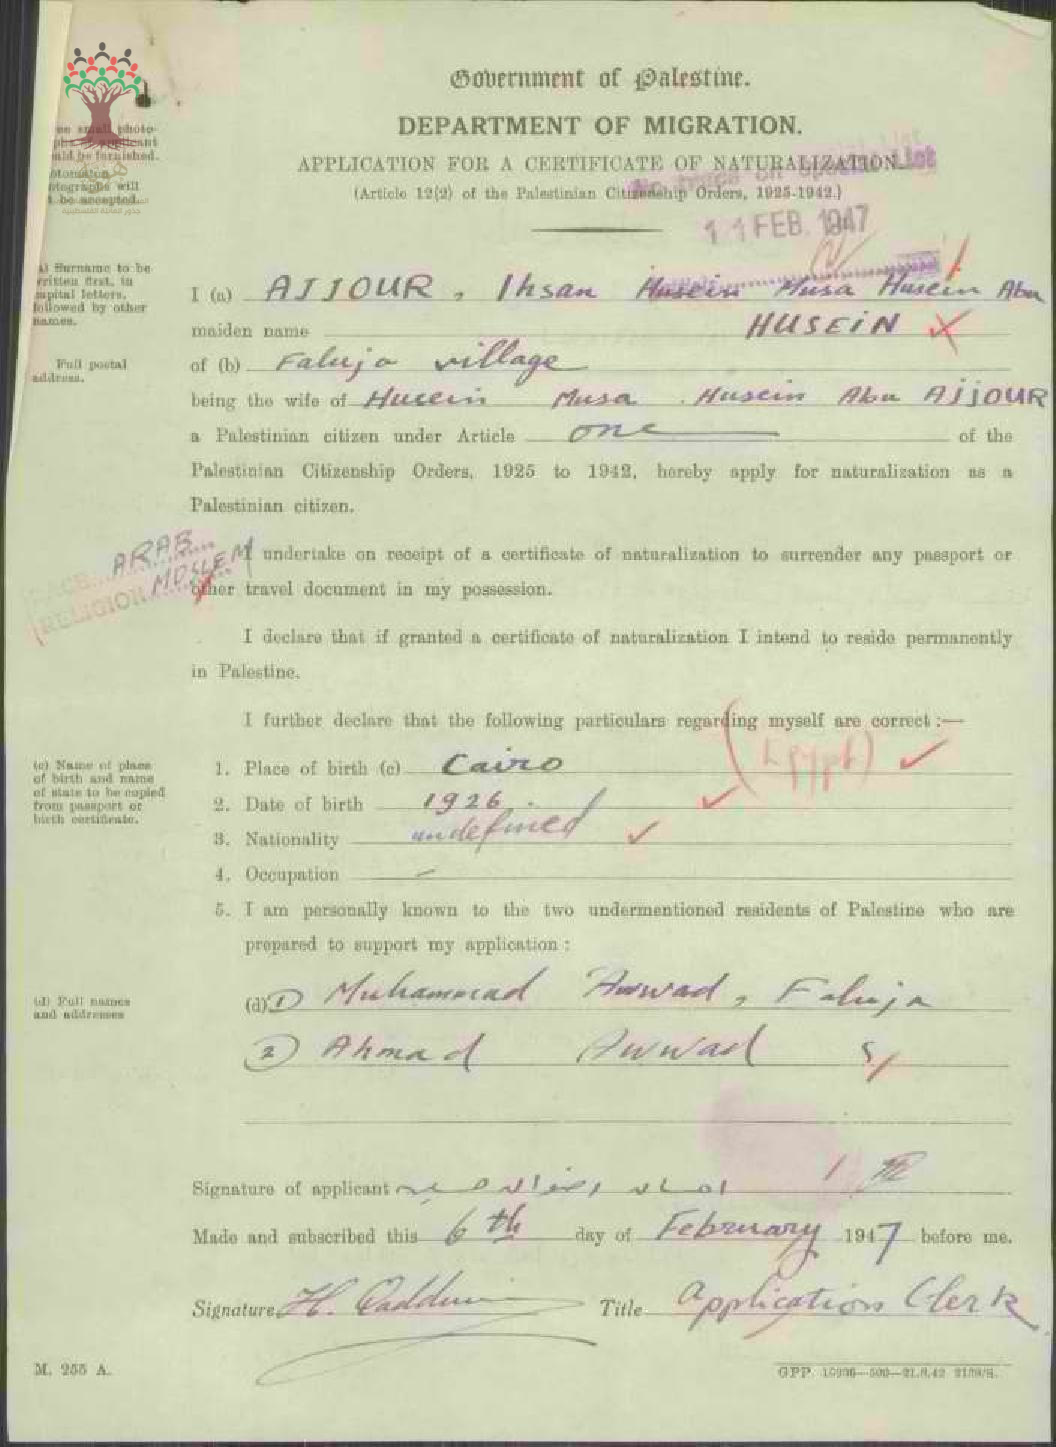 Government of Palestine.
DEPARTMENT OF MIGRATION.
APPLICATION FOR A CERTIFICATE OF NATURALIZATION
(Article 12(2) of the Palestinian Citizenship Orders, 1925-1942.)
on Special List
11 FEB. 1947
photo-
applicant
be furnished.
will
be accepted.
(a) Surname to be
written first, in
capital letters,
followed by other
names.
I (a) AJJOUR, Ihsan Husein Musa Husein Abu
maiden name HUSEIN
Full postal
address.
of (b) Faluja village
being the wife of Husein Musa Husein Abu AJJOUR
a Palestinian citizen under Article one of the
Palestinian Citizenship Orders, 1925 to 1942, hereby apply for naturalization as a
Palestinian citizen.
RACE ARAB
RELIGION MOSLEM
I undertake on receipt of a certificate of naturalization to surrender any passport or
other travel document in my possession.
I declare that if granted a certificate of naturalization I intend to reside permanently
in Palestine.
I further declare that the following particulars regarding myself are correct :—
(c) Name of place
of birth and name
of state to be copied
from passport or
birth certificate.
1. Place of birth (c) Cairo (Egypt)
2. Date of birth 1926.
3. Nationality undefined
4. Occupation —
5. I am personally known to the two undermentioned residents of Palestine who are
prepared to support my application :
(d) Full names
and addresses
(d) 1) Muhammad Awwad, Faluja
2) Ahmad Awwad
Signature of applicant
Made and subscribed this 6th day of February 1947 before me.
Signature H. Title Application Clerk
M. 255 A.
GPP. 10936—500—21.8.42